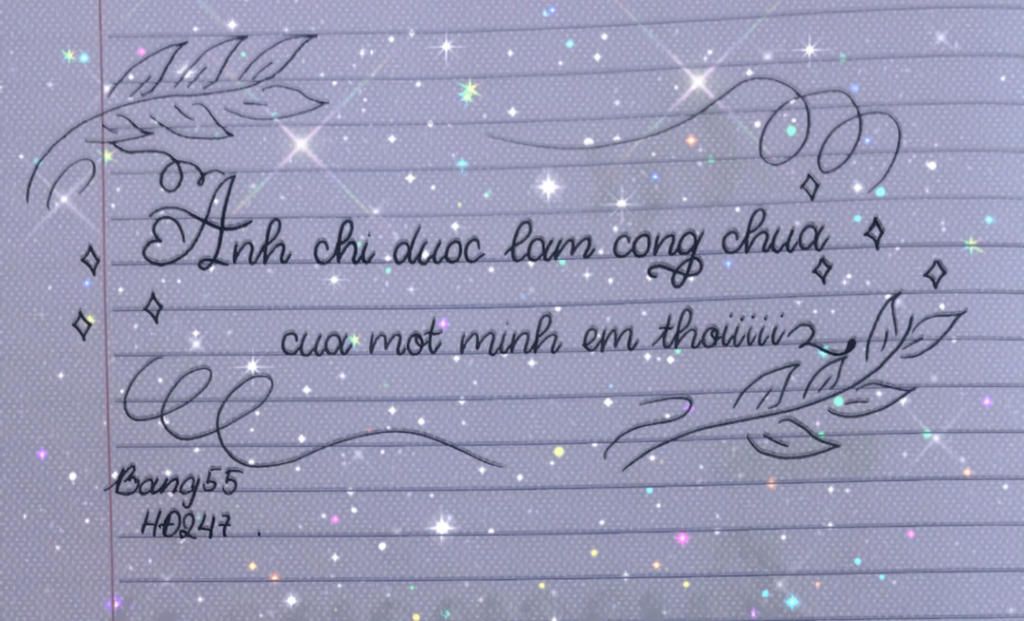 Anh chi duoc lam cong chua
cua mot minh em thoiiiiii
Bang55
HĐ247.